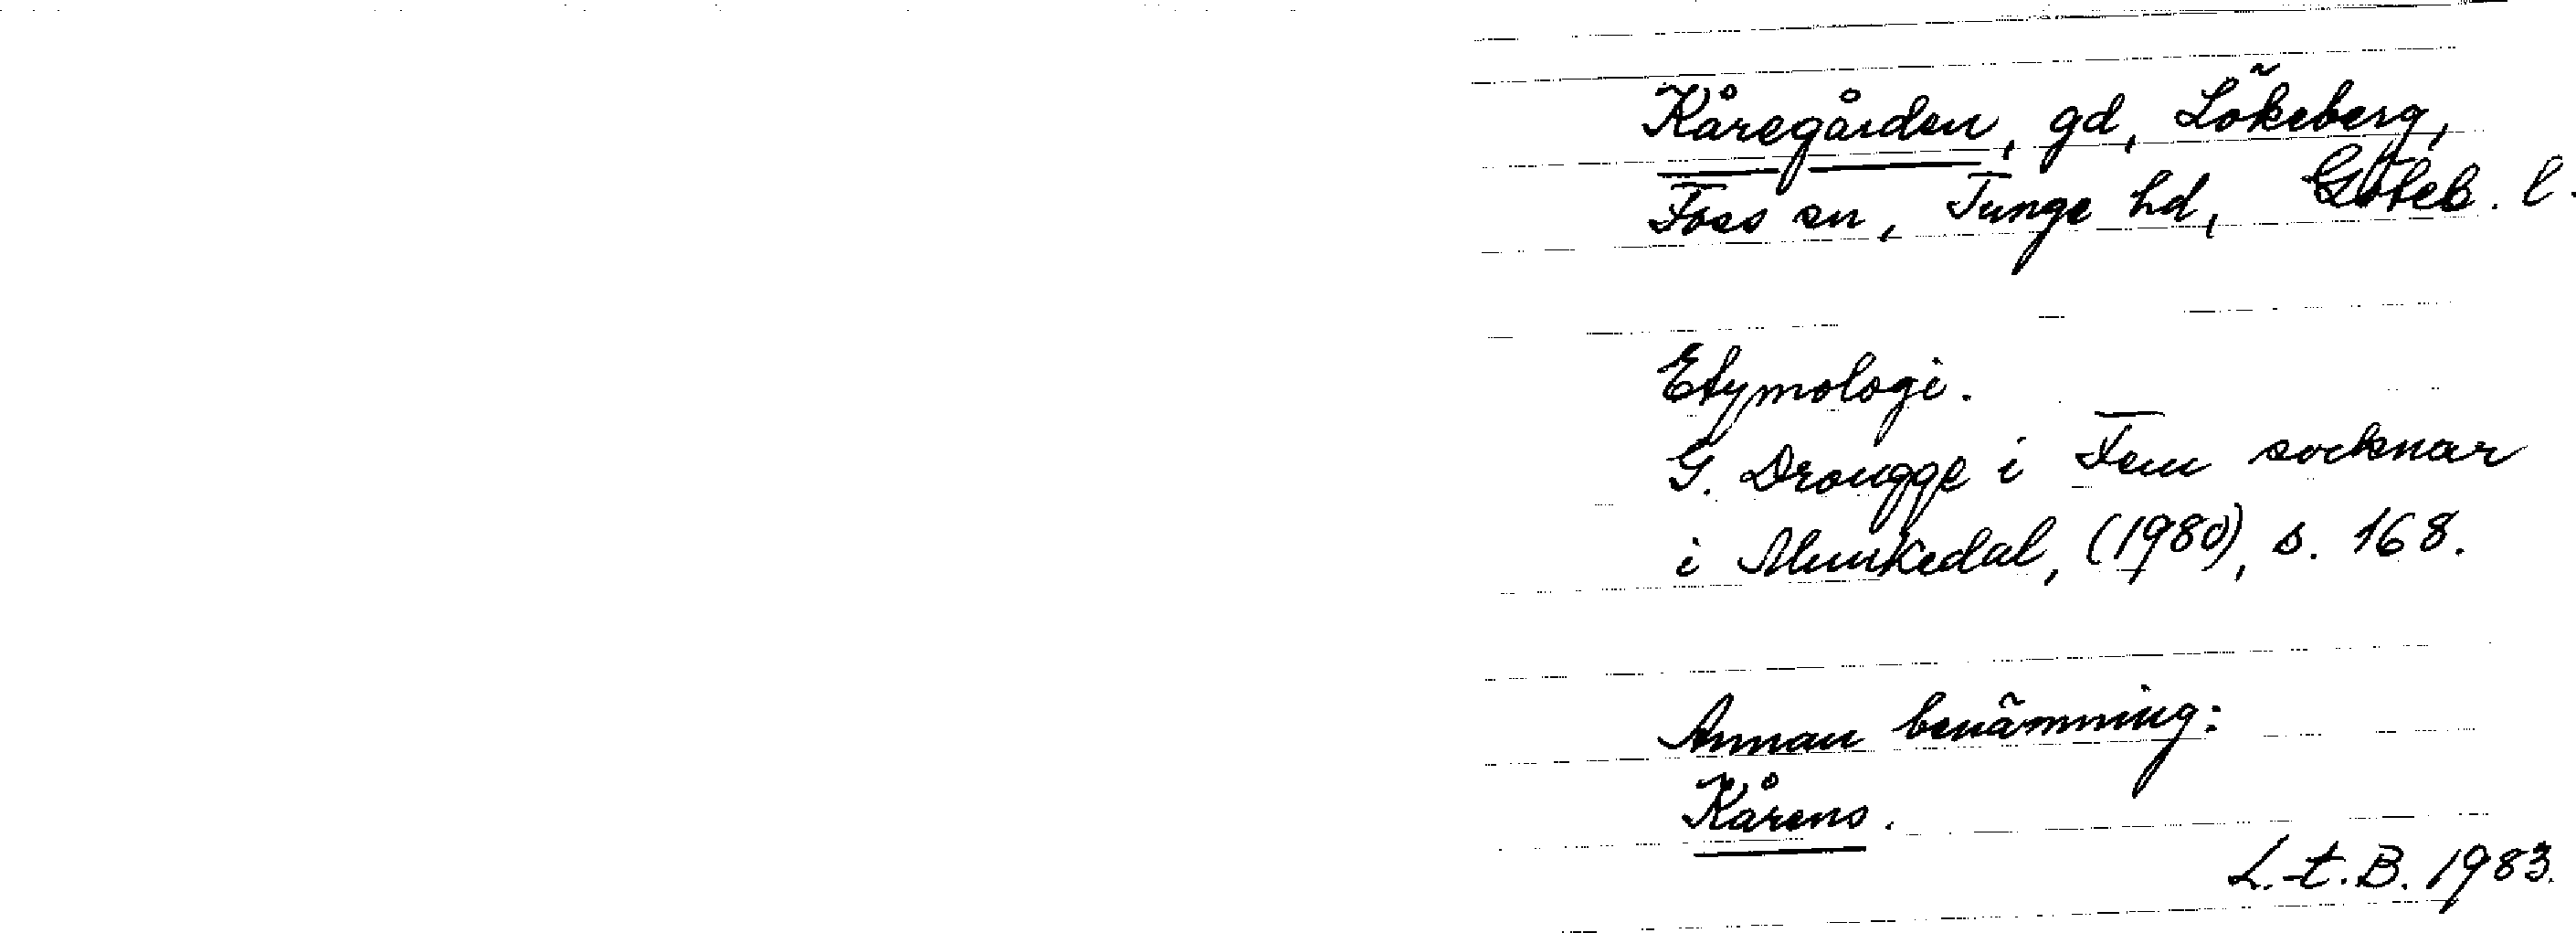 Kåregården, gd, Lökeberg,
Foss sn, Tunge hd, Göteb. l.
Etymologi.
G. Drougge i Fem socknar
i Munkedal, (1980), s. 168.
Annan benämning:
Kårens.
L.t.B. 1983.